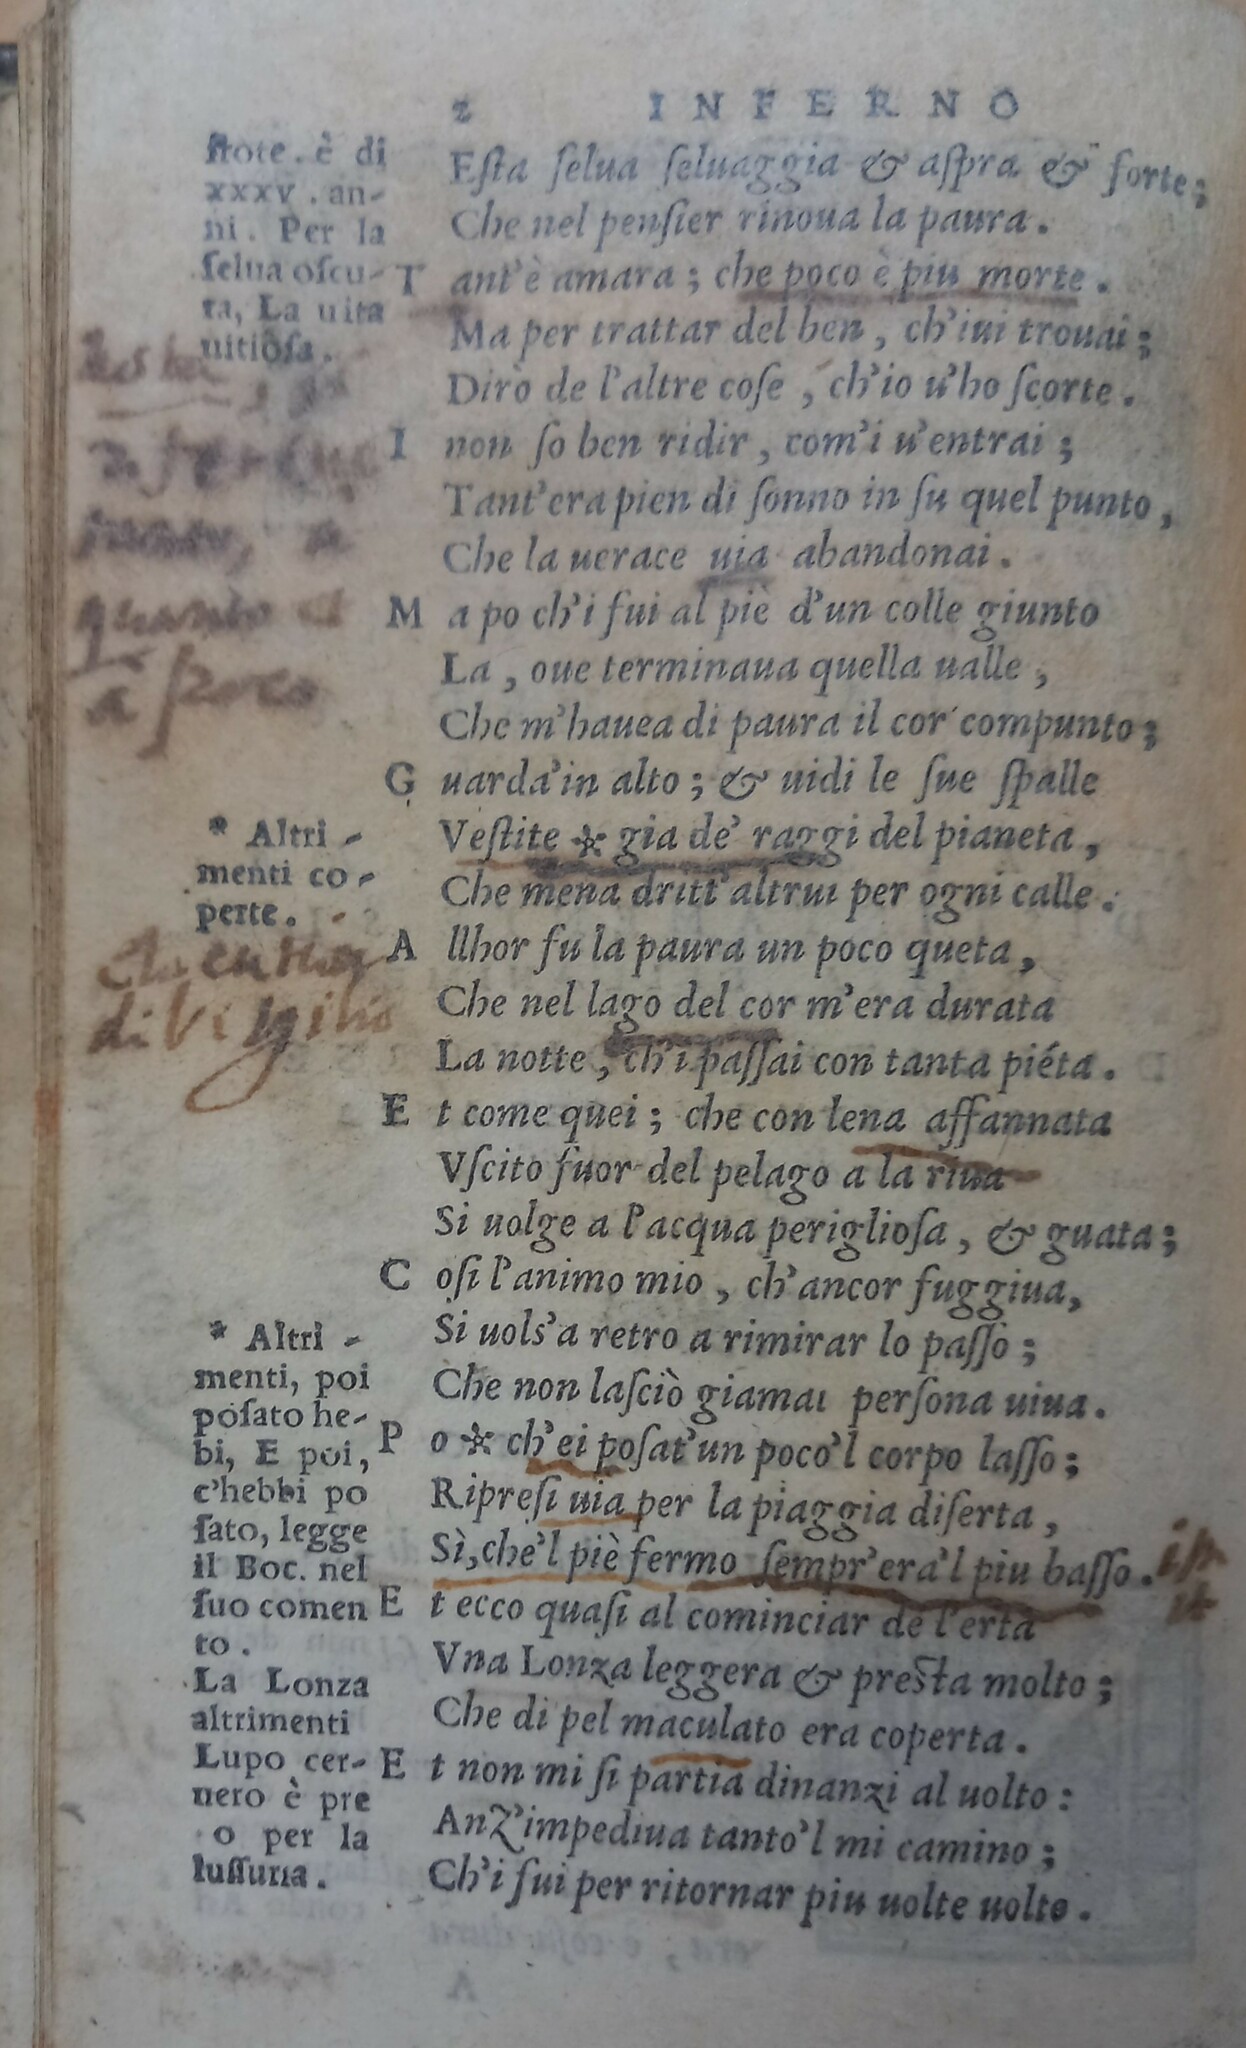 2 INFERNO
ſtote. è di
xxxv. an-
ni. Per la
ſelua oſcu-
ra, La uita
uitioſa.
Eſta ſelua ſeluaggia & aſpra & forte;
Che nel penſier rinoua la paura.
T ant'è amara; che poco è piu morte.
Ma per trattar del ben, ch'iui trouai;
Dirò de l'altre coſe, ch'io u'ho ſcorte.
I non ſo ben ridir, com'i u'entrai;
Tant'era pien di ſonno in ſu quel punto,
Che la uerace uia abandonai.
quanto
a poco
M a po ch'i fui al piè d'un colle giunto
La, oue terminaua quella ualle,
Che m'hauea di paura il cor compunto;
G uarda'in alto; & uidi le ſue ſpalle
Veſtite * gia de' raggi del pianeta,
Che mena dritt'altrui per ogni calle.
* Altri-
menti co-
perte.
A llhor fu la paura un poco queta,
Che nel lago del cor m'era durata
La notte, ch'i paſſai con tanta piéta.
di Virgilio
E t come quei; che con lena affannata
Vſcito fuor del pelago a la riua
Si uolge a l'acqua periglioſa, & guata;
C oſi l'animo mio, ch'ancor fuggiua,
Si uols'a retro a rimirar lo paſſo;
Che non laſciò giamai perſona uiua.
P o * ch'ei poſat'un poco'l corpo laſſo;
Ripreſi uia per la piaggia diſerta,
Sì, che'l piè fermo ſempr'era'l piu baſſo.
* Altri-
menti, poi
poſato he-
bi, E poi,
c'hebbi po
ſato, legge
il Boc. nel
ſuo comen
to.
E t ecco quaſi al cominciar de l'erta
Vna Lonza leggera & preſta molto;
Che di pel maculato era coperta.
E t non mi ſi partia dinanzi al uolto:
Anz'impediua tanto'l mi camino;
Ch'i fui per ritornar piu uolte uolto.
La Lonza
altrimenti
Lupo cer-
uero è pre
o per la
luſſuria.